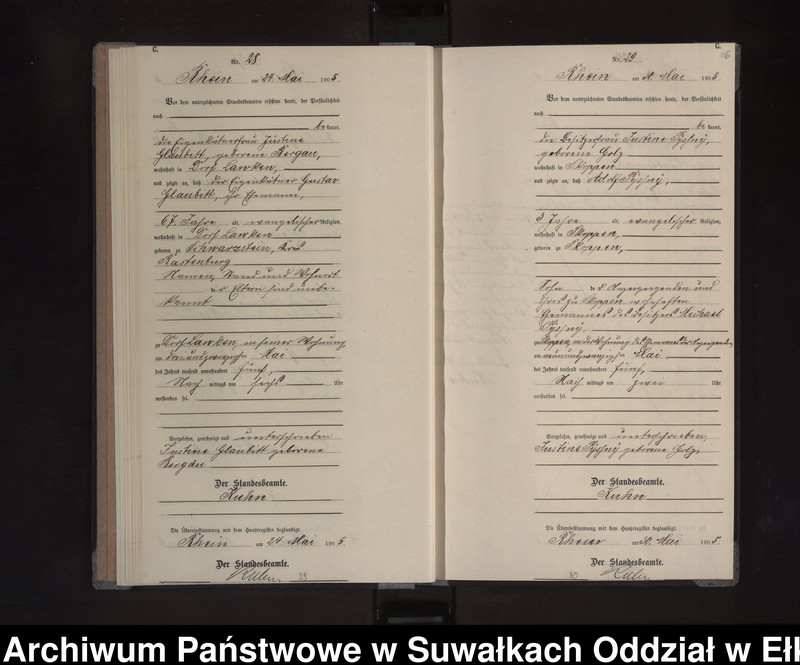 C.
Nr. 28
Rhein am 24. Mai 1905.
Vor dem unterzeichneten Standesbeamten erschien heute, der Persönlichkeit
nach
be kannt,
die Eigenkätnerfrau Justine
Glaubitt, geborene Bergau,
wohnhaft in Dorf Lawken,
und zeigte an, daß der Eigenkätner Gustav
Glaubitt, Ihr Ehemann,
67 Jahre a evangelischer Religion,
wohnhaft in Dorf Lawken
geboren zu Schwarzstein, Kreis
Rastenburg
Namen, Stand und Wohnort
der Eltern sind unbe-
kannt
zu Dorf Lawken, in seiner Wohnung,
am dreiundzwanzigsten Mai
des Jahres tausend neunhundert fünf,
Nach mittags um sechs Uhr
verstorben sei.
Vorgelesen, genehmigt und unterschrieben
Justine Glaubitt geborene
Bergau
Der Standesbeamte.
Kuhn
Die Übereinstimmung mit dem Hauptregister beglaubigt.
Rhein am 24. Mai 1905.
Der Standesbeamte.
Kuhn
29
C.
16
Nr. 29
Rhein am Mai 1905
Vor dem unterzeichneten Standesbeamten erschien heute, der Persönlichkeit
nach
be kannt,
die Besitzerfrau Justine
geborene Golz
wohnhaft in Skoppen
und zeigte an, daß Adolf
3 Jahre a evangelischer Religion,
wohnhaft in Skoppen,
geboren zu Skoppen,
Sohn der Anzeigenden und
ihres zu Skoppen wohnhaften
Ehemannes des Besitzers Michael
zu Skoppen, in der Wohnung des Ehemannes der Anzeigenden,
am neunundzwanzigsten Mai
des Jahres tausend neunhundert fünf,
Nach mittags um zwei Uhr
verstorben sei.
Vorgelesen, genehmigt und unterschrieben,
Justine geborene Golz,
Der Standesbeamte.
Kuhn
Die Übereinstimmung mit dem Hauptregister beglaubigt.
Rhein am Mai 1905.
Der Standesbeamte.
Kuhn
30
Archiwum Państwowe w Suwałkach Oddział w Ełk